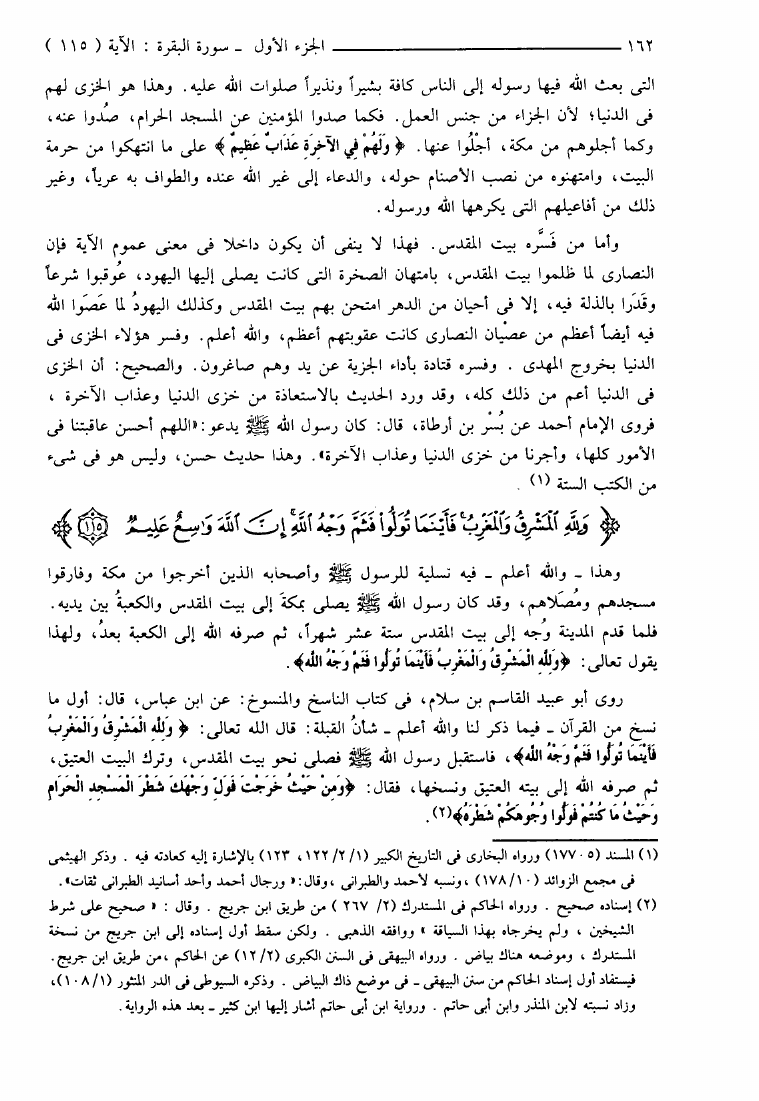 ١٦٢ ــــــــــ الجزء الأول - سورة البقرة : الآية ( ١١٥ )
التى بعث الله فيها رسوله إلى الناس كافة بشيراً ونذيراً صلوات الله عليه. وهذا هو الخزى لهم
فى الدنيا؛ لأن الجزاء من جنس العمل. فكما صدوا المؤمنين عن المسجد الحرام، صُدوا عنه،
وكما أجلوهم من مكة، أجْلُوا عنها. ﴿ وَلَهُمْ فِي الآخِرَةِ عَذَابٌ عَظِيمٌ ﴾ على ما انتهكوا من حرمة
البيت، وامتهنوه من نصب الأصنام حوله، والدعاء إلى غير الله عنده والطواف به عرياً، وغير
ذلك من أفاعيلهم التى يكرهها الله ورسوله.
وأما من فَسَّره بيت المقدس. فهذا لا ينفى أن يكون داخلا فى معنى عموم الآية فإن
النصارى لما ظلموا بيت المقدس، بامتهان الصخرة التى كانت يصلى إليها اليهود، عُوقبوا شرعاً
وقَدَرا بالذلة فيه، إلا فى أحيان من الدهر امتحن بهم بيت المقدس وكذلك اليهودُ لما عَصَوا الله
فيه أيضاً أعظم من عصْيان النصارى كانت عقوبتهم أعظم، والله أعلم. وفسر هؤلاء الخزى فى
الدنيا بخروج المهدى . وفسره قتادة بأداء الجزية عن يد وهم صاغرون. والصحيح: أن الخزى
فى الدنيا أعم من ذلك كله، وقد ورد الحديث بالاستعاذة من خزى الدنيا وعذاب الآخرة ،
فروى الإمام أحمد عن بُسْر بن أرطاة، قال: كان رسول الله ﷺ يدعو:«اللهم أحسن عاقبتنا فى
الأمور كلها، وأجرنا من خزى الدنيا وعذاب الآخرة». وهذا حديث حسن، وليس هو فى شىء
من الكتب الستة (١) .
﴿ وَلِلَّهِ ٱلْمَشْرِقُ وَٱلْمَغْرِبُ ۚ فَأَيْنَمَا تُوَلُّوا۟ فَثَمَّ وَجْهُ ٱللَّهِ ۚ إِنَّ ٱللَّهَ وَٰسِعٌ عَلِيمٌ ١١٥ ﴾
وهذا - والله أعلم - فيه تسلية للرسول ﷺ وأصحابه الذين أخرجوا من مكة وفارقوا
مسجدهم ومُصَلاهم، وقد كان رسول الله ﷺ يصلى بمكةَ إلى بيت المقدس والكعبةُ بين يديه.
فلما قدم المدينة وُجه إلى بيت المقدس ستة عشر شهراً، ثم صرفه الله إلى الكعبة بعدُ، ولهذا
يقول تعالى: ﴿وَلِلَّهِ الْمَشْرِقُ وَالْمَغْرِبُ فَأَيْنَمَا تُوَلُّوا فَثَمَّ وَجْهُ اللَّه﴾.
روى أبو عبيد القاسم بن سلام، فى كتاب الناسخ والمنسوخ: عن ابن عباس، قال: أول ما
نسخ من القرآن - فيما ذكر لنا والله أعلم - شأنُ القبلة: قال الله تعالى: ﴿ وَلِلَّهِ الْمَشْرِقُ وَالْمَغْرِبُ
فَأَيْنَمَا تُوَلُّوا فَثَمَّ وَجْهُ اللَّه﴾، فاستقبل رسول الله ﷺ فصلى نحو بيت المقدس، وترك البيت العتيق،
ثم صرفه الله إلى بيته العتيق ونسخها، فقال: ﴿وَمِنْ حَيْثُ خَرَجْتَ فَوَلِّ وَجْهَكَ شَطْرَ الْمَسْجِدِ الْحَرَامِ
وَحَيْثُ مَا كُنتُمْ فَوَلُّوا وُجُوهَكُمْ شَطْرَهُ﴾(٢).
(١) المسند (١٧٧٠٥) ورواه البخارى فى التاريخ الكبير (١/ ٢/ ١٢٢، ١٢٣) بالإشارة إليه كعادته فيه . وذكر الهيثمى
فى مجمع الزوائد (١٠ /١٧٨) ،ونسبه لأحمد والطبرانى ،وقال:« ورجال أحمد وأحد أسانيد الطبرانى ثقات».
(٢) إسناده صحيح . ورواه الحاكم فى المستدرك (٢/ ٢٦٧ ) من طريق ابن جريج . وقال : « صحيح على شرط
الشيخين ، ولم يخرجاه بهذا السياقة » ووافقه الذهبى . ولكن سقط أول إسناده إلى ابن جريج من نسخة
المستدرك ، وموضعه هناك بياض . ورواه البيهقى فى السنن الكبرى (٢/ ١٢) عن الحاكم ،من طريق ابن جريج.
فيستفاد أول إسناد الحاكم من سنن البيهقى - فى موضع ذاك البياض . وذكره السيوطى فى الدر المنثور (١/ ١٠٨)،
وزاد نسبته لابن المنذر وابن أبى حاتم . ورواية ابن أبى حاتم أشار إليها ابن كثير - بعد هذه الرواية.